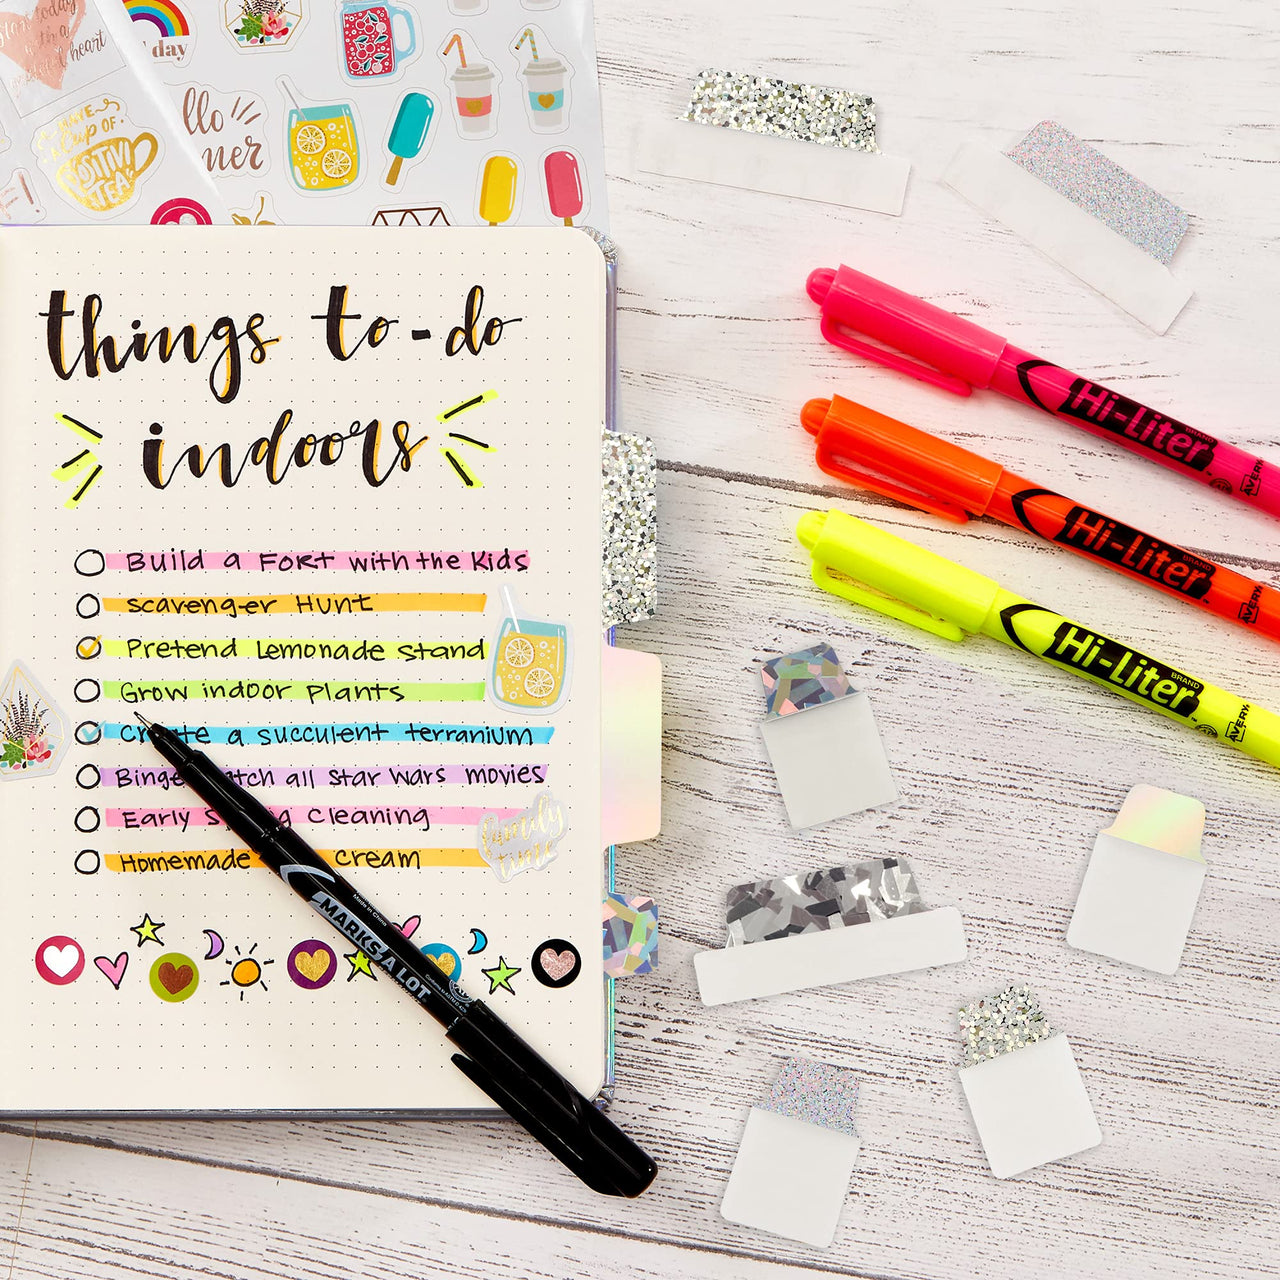 Start today
with a
grateful heart
day
llo
ner
HAVE
a cup of
POSITIVI
TEA
things to-do
indoors
Build a Fort with the Kids
Scavenger Hunt
Pretend Lemonade Stand
Grow indoor Plants
Create a succulent terranium
Binge atch all Star Wars movies
Early S g Cleaning
Homemade cream
family
time
Made in China
MARKSALOT
Hi-Liter
BRAND
AVERY
Hi-Liter
BRAND
AVERY
Hi-Liter
BRAND
AVERY